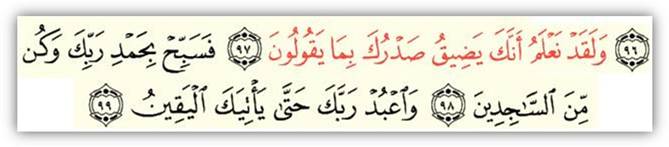 ﴿٩٦﴾ وَلَقَدْ نَعْلَمُ أَنَّكَ يَضِيقُ صَدْرُكَ بِمَا يَقُولُونَ ﴿٩٧﴾ فَسَبِّحْ بِحَمْدِ رَبِّكَ وَكُن
مِّنَ السَّاجِدِينَ ﴿٩٨﴾ وَاعْبُدْ رَبَّكَ حَتَّىٰ يَأْتِيَكَ الْيَقِينُ ﴿٩٩﴾